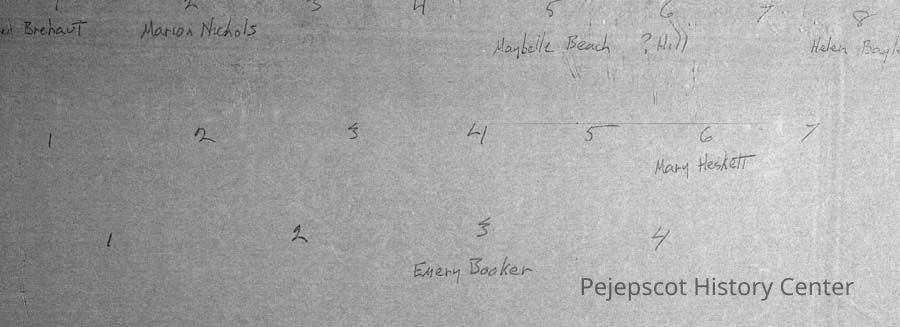 1 2 3 4 5 6 7 8
Brehaut Marion Nichols Maybelle Beach ? Hill Helen
1 2 3 4 5 6 7
Mary Heskett
1 2 3 4
Emery Booker
Pejepscot History Center